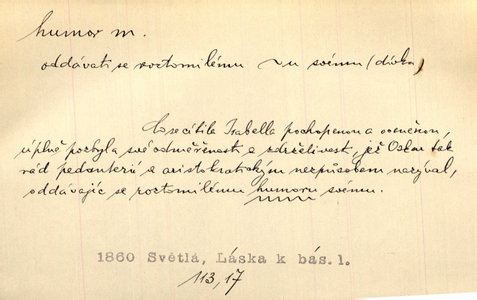 humor m.
oddávati se roztomilému ~u svému (dívka)
Cosecítila Isabella pochopenou a oceněnou,
úplně pozbyla své odměřenosti a zdrželivosti, jež Oskar tak
rád pedanterií a aristokratickým nezpůsobem nazýval,
oddávajíc se roztomilému humoru svému.
1860 Světlá, Láska k bás. 1.
113,17